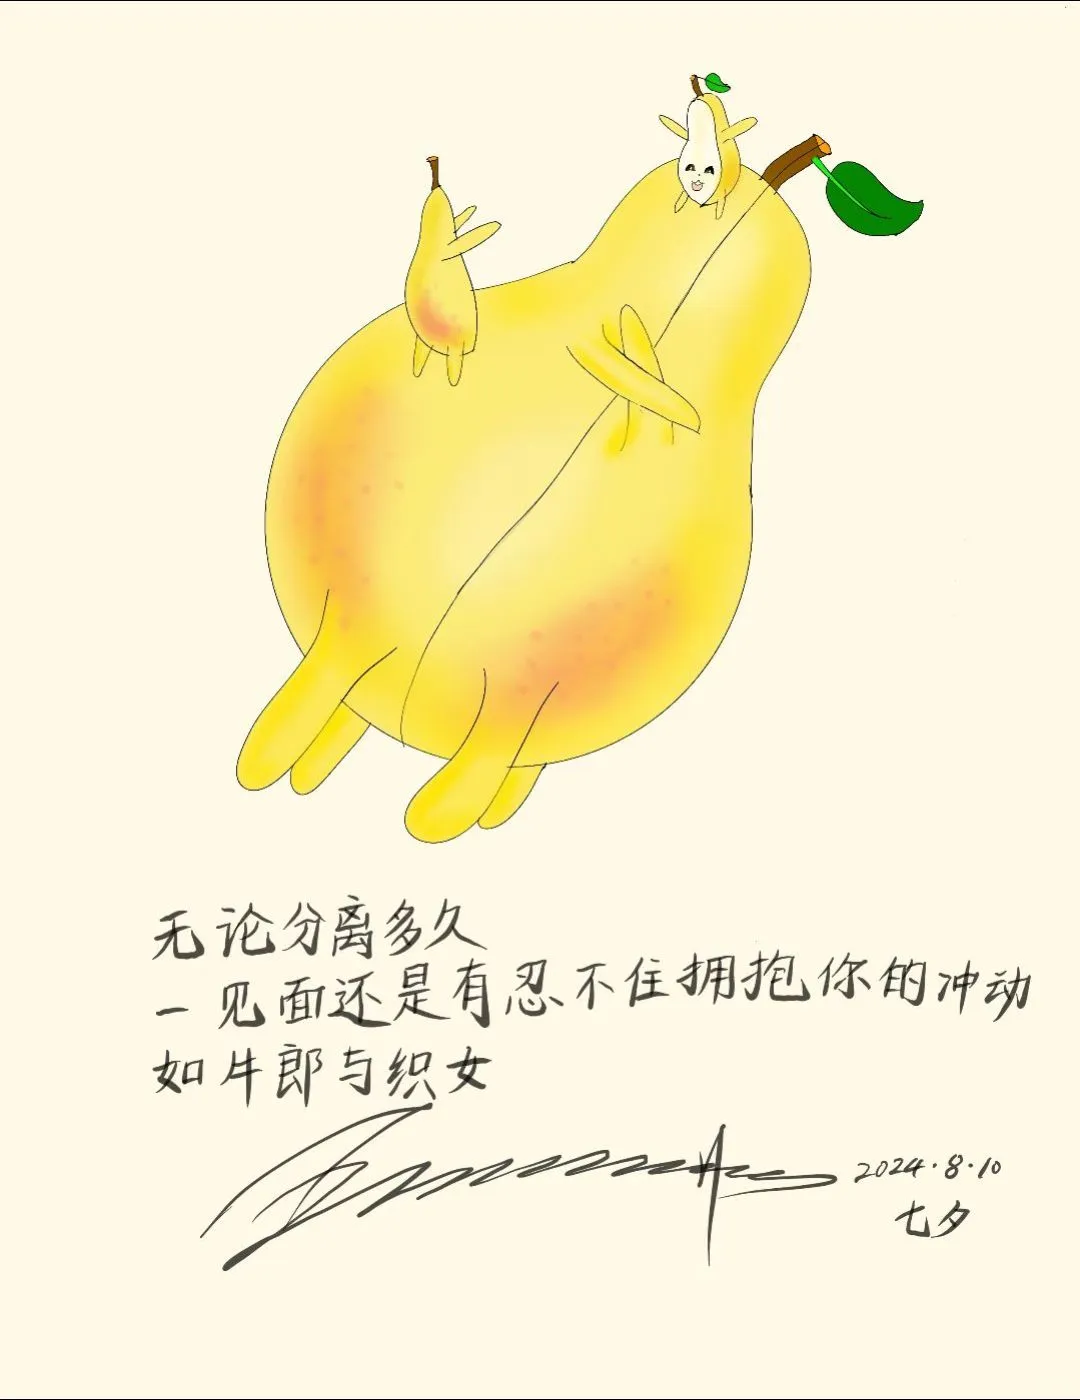 无论分离多久
一见面还是有忍不住拥抱你的冲动
如牛郎与织女
2024.8.10
七夕